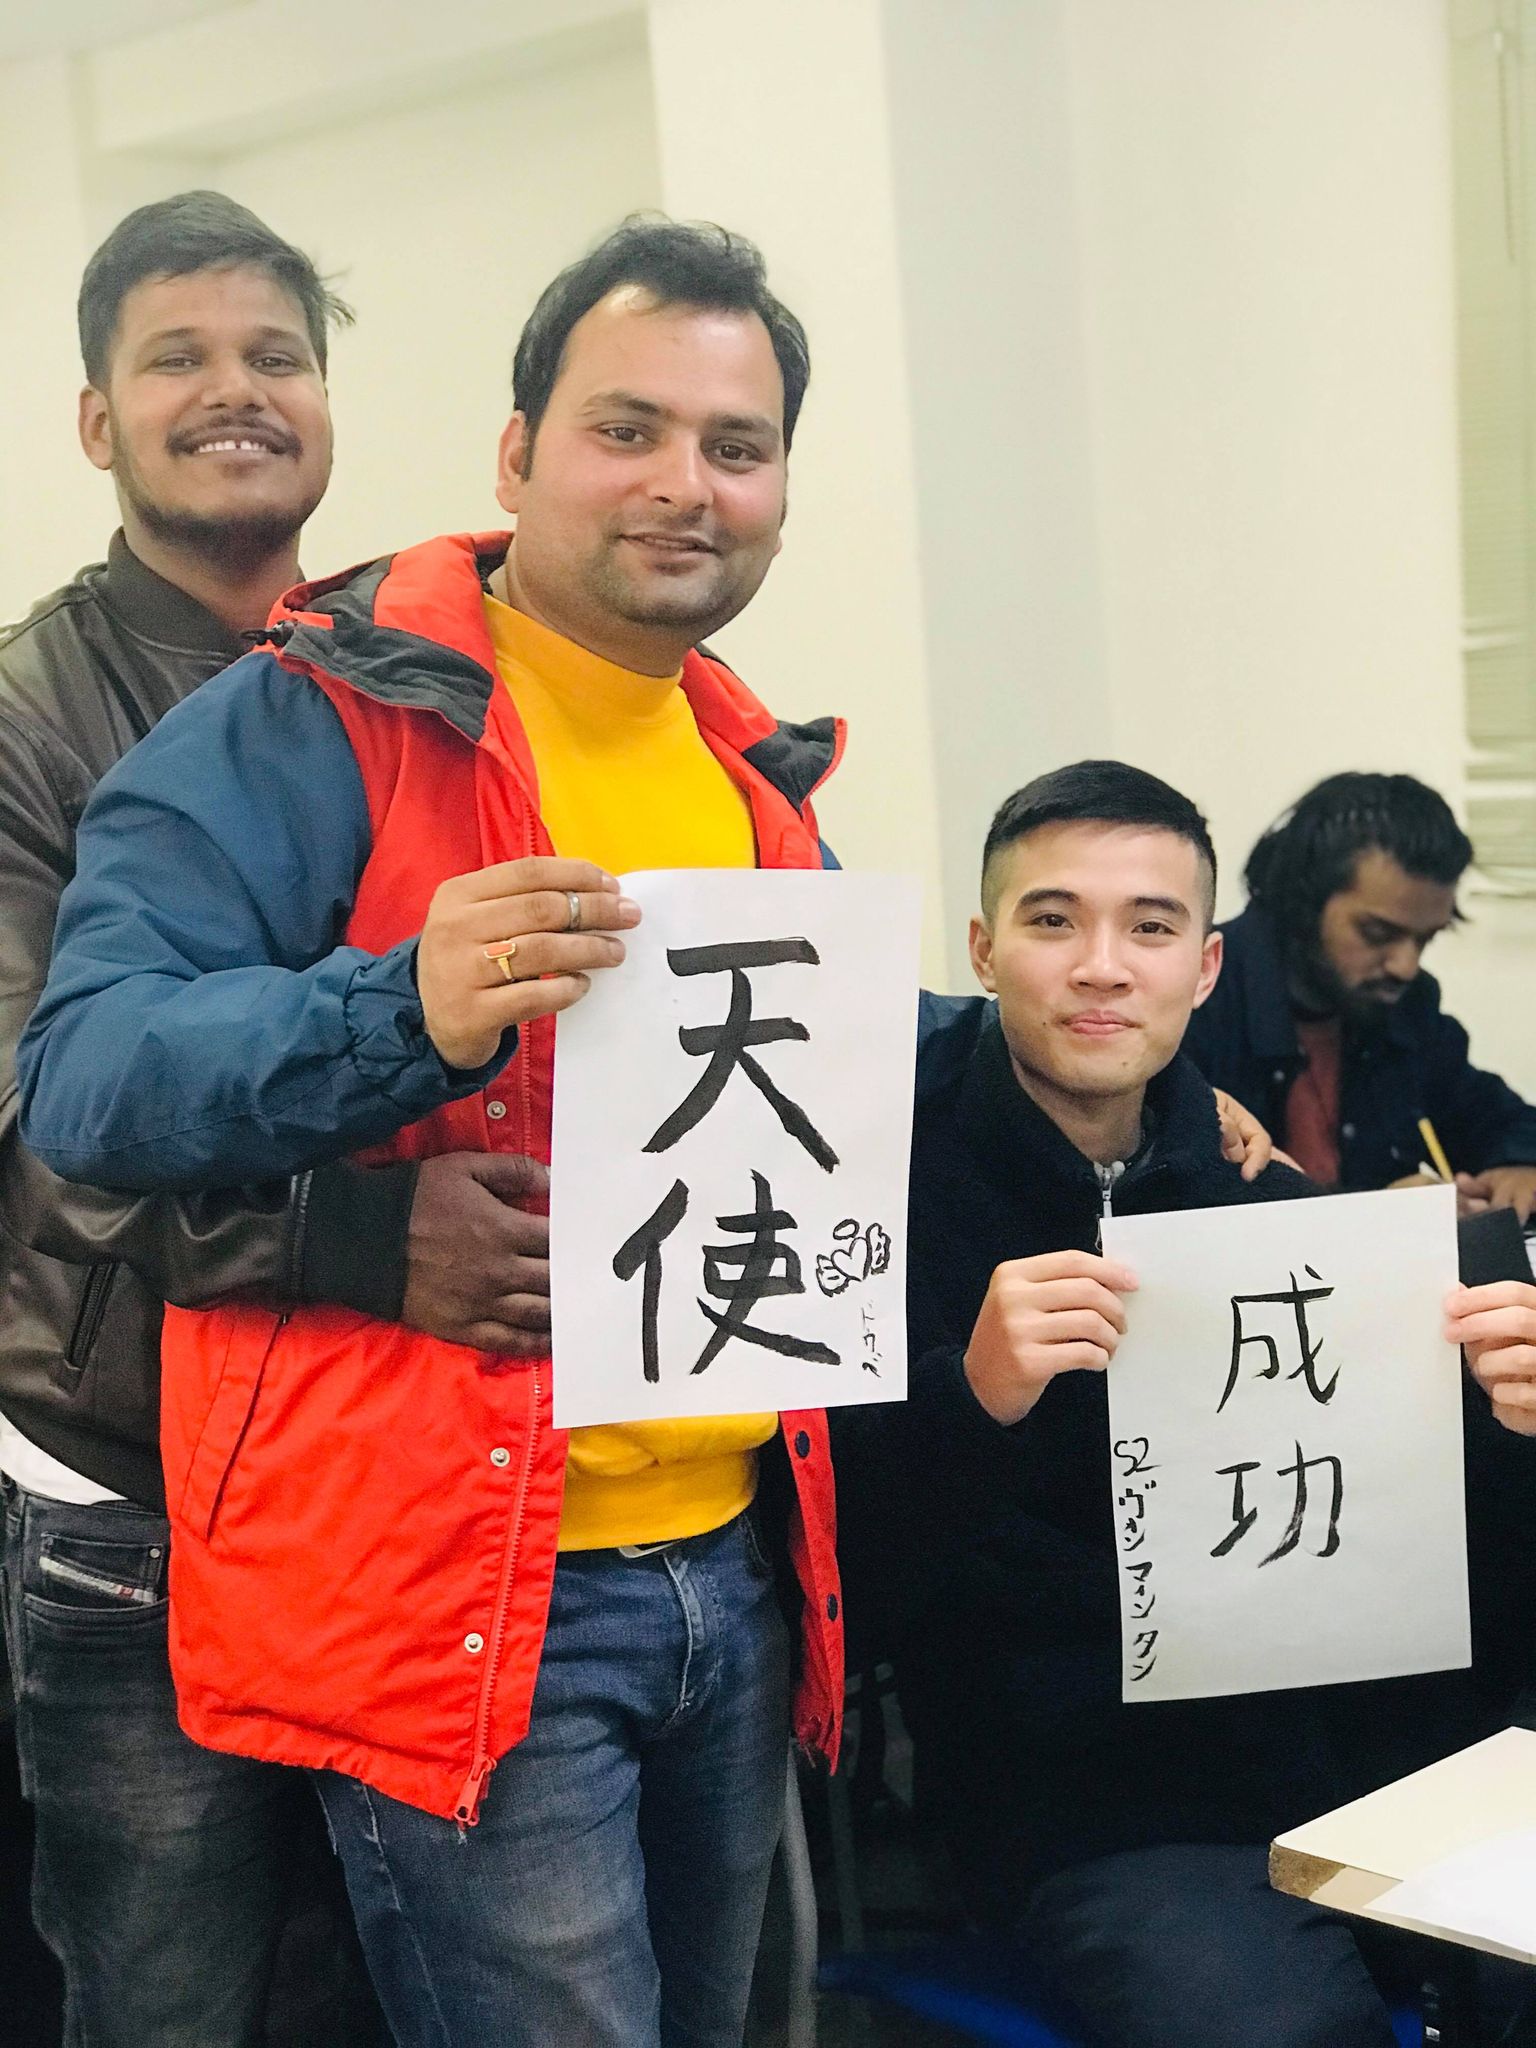 天使
ドゥベ
成功
S2 ヴァン マイン タン